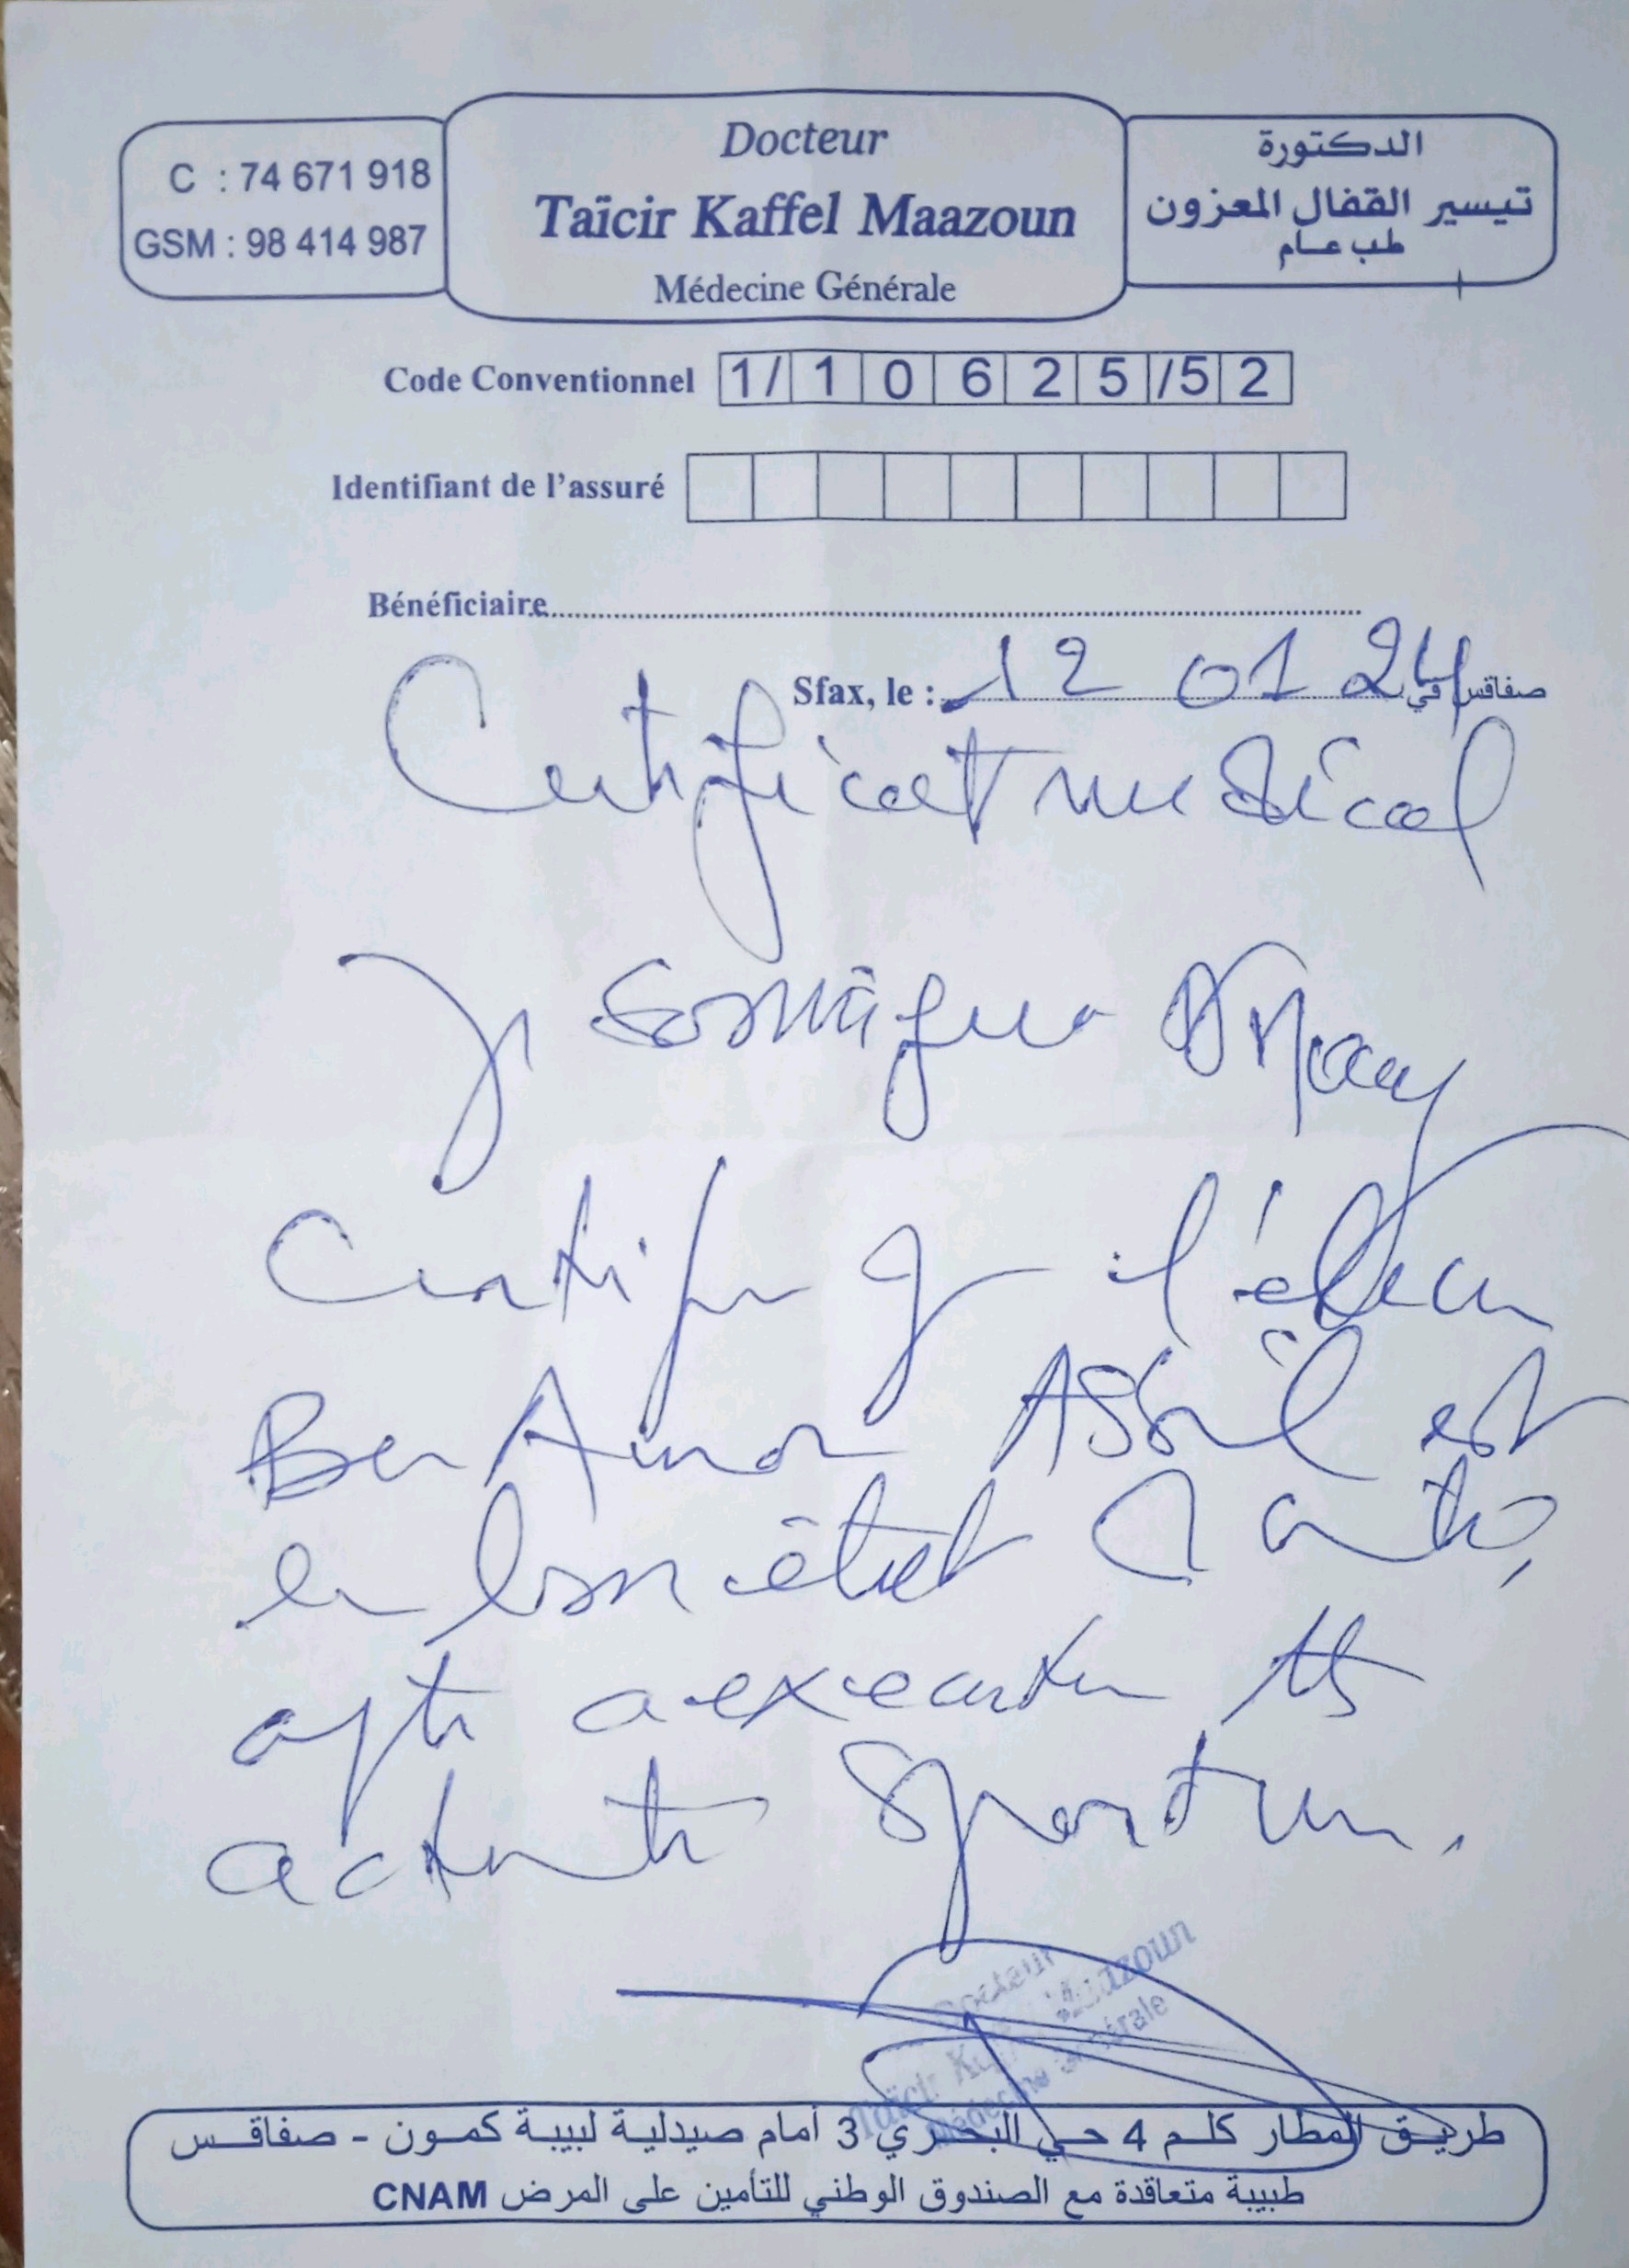 C : 74 671 918
GSM : 98 414 987
Docteur
Taïcir Kaffel Maazoun
Médecine Générale
الدكتورة
تيسير القفال المعزون
طب عام
Code Conventionnel 1/ 1 0 6 2 5 /5 2
Identifiant de l'assuré
Bénéficiaire
Sfax, le : 12 01 24 صفاقس في
Certificat médical
Je soussignée Dr Maaz
Certifie q l'élève
Ben Amor Assil est
en bon état santé
apte a executer tts
activité sportive.
Docteur
Taïcir Kaffel Maazoun
Médecine Générale
طريق المطار كلم 4 حي البحري 3 أمام صيدلية لبيبة كمون - صفاقس
طبيبة متعاقدة مع الصندوق الوطني للتأمين على المرض CNAM